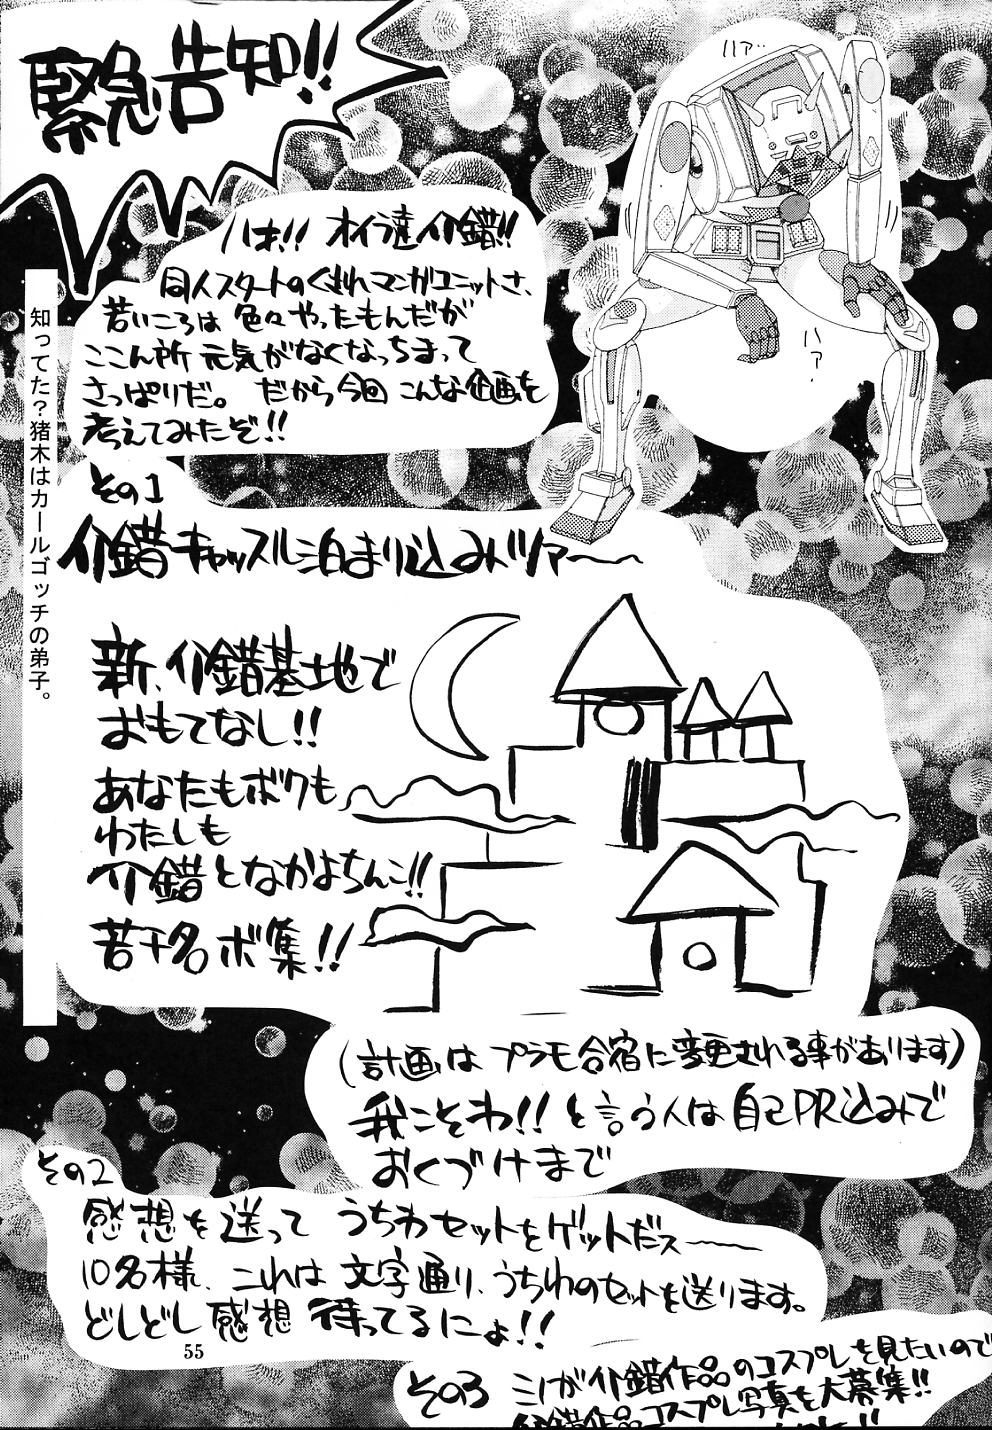 緊急告知!!
ハァ…
ハァ…
ハオ!! オイラ達介錯!!
同人スタートのくされマンガユニットさ、
若いころは色々やったもんだが
ここん所元気がなくなっちまって
さっぱりだ。だから今回こんな企画を
考えてみたぞ!!
知ってた？猪木はカールゴッチの弟子。
その1
介錯キャッスル泊まり込みツアー〜
新、介錯基地で
おもてなし!!
あなたもボクも
わたしも
介錯となかよちんこ!!
若干名ボ集!!
(計画はプラモ合宿に変更される事があります)
我こそわ!!と言う人は自己PR込みで
おくづけまで
その2
感想を送ってうちわセットをゲットだス〜
10名様、これは文字通り、うちわのセットを送ります。
どしどし感想待ってるにょ!!
55
その3
シガ介錯作品のコスプレを見たいので
介錯作品コスプレ写真を大募集!!